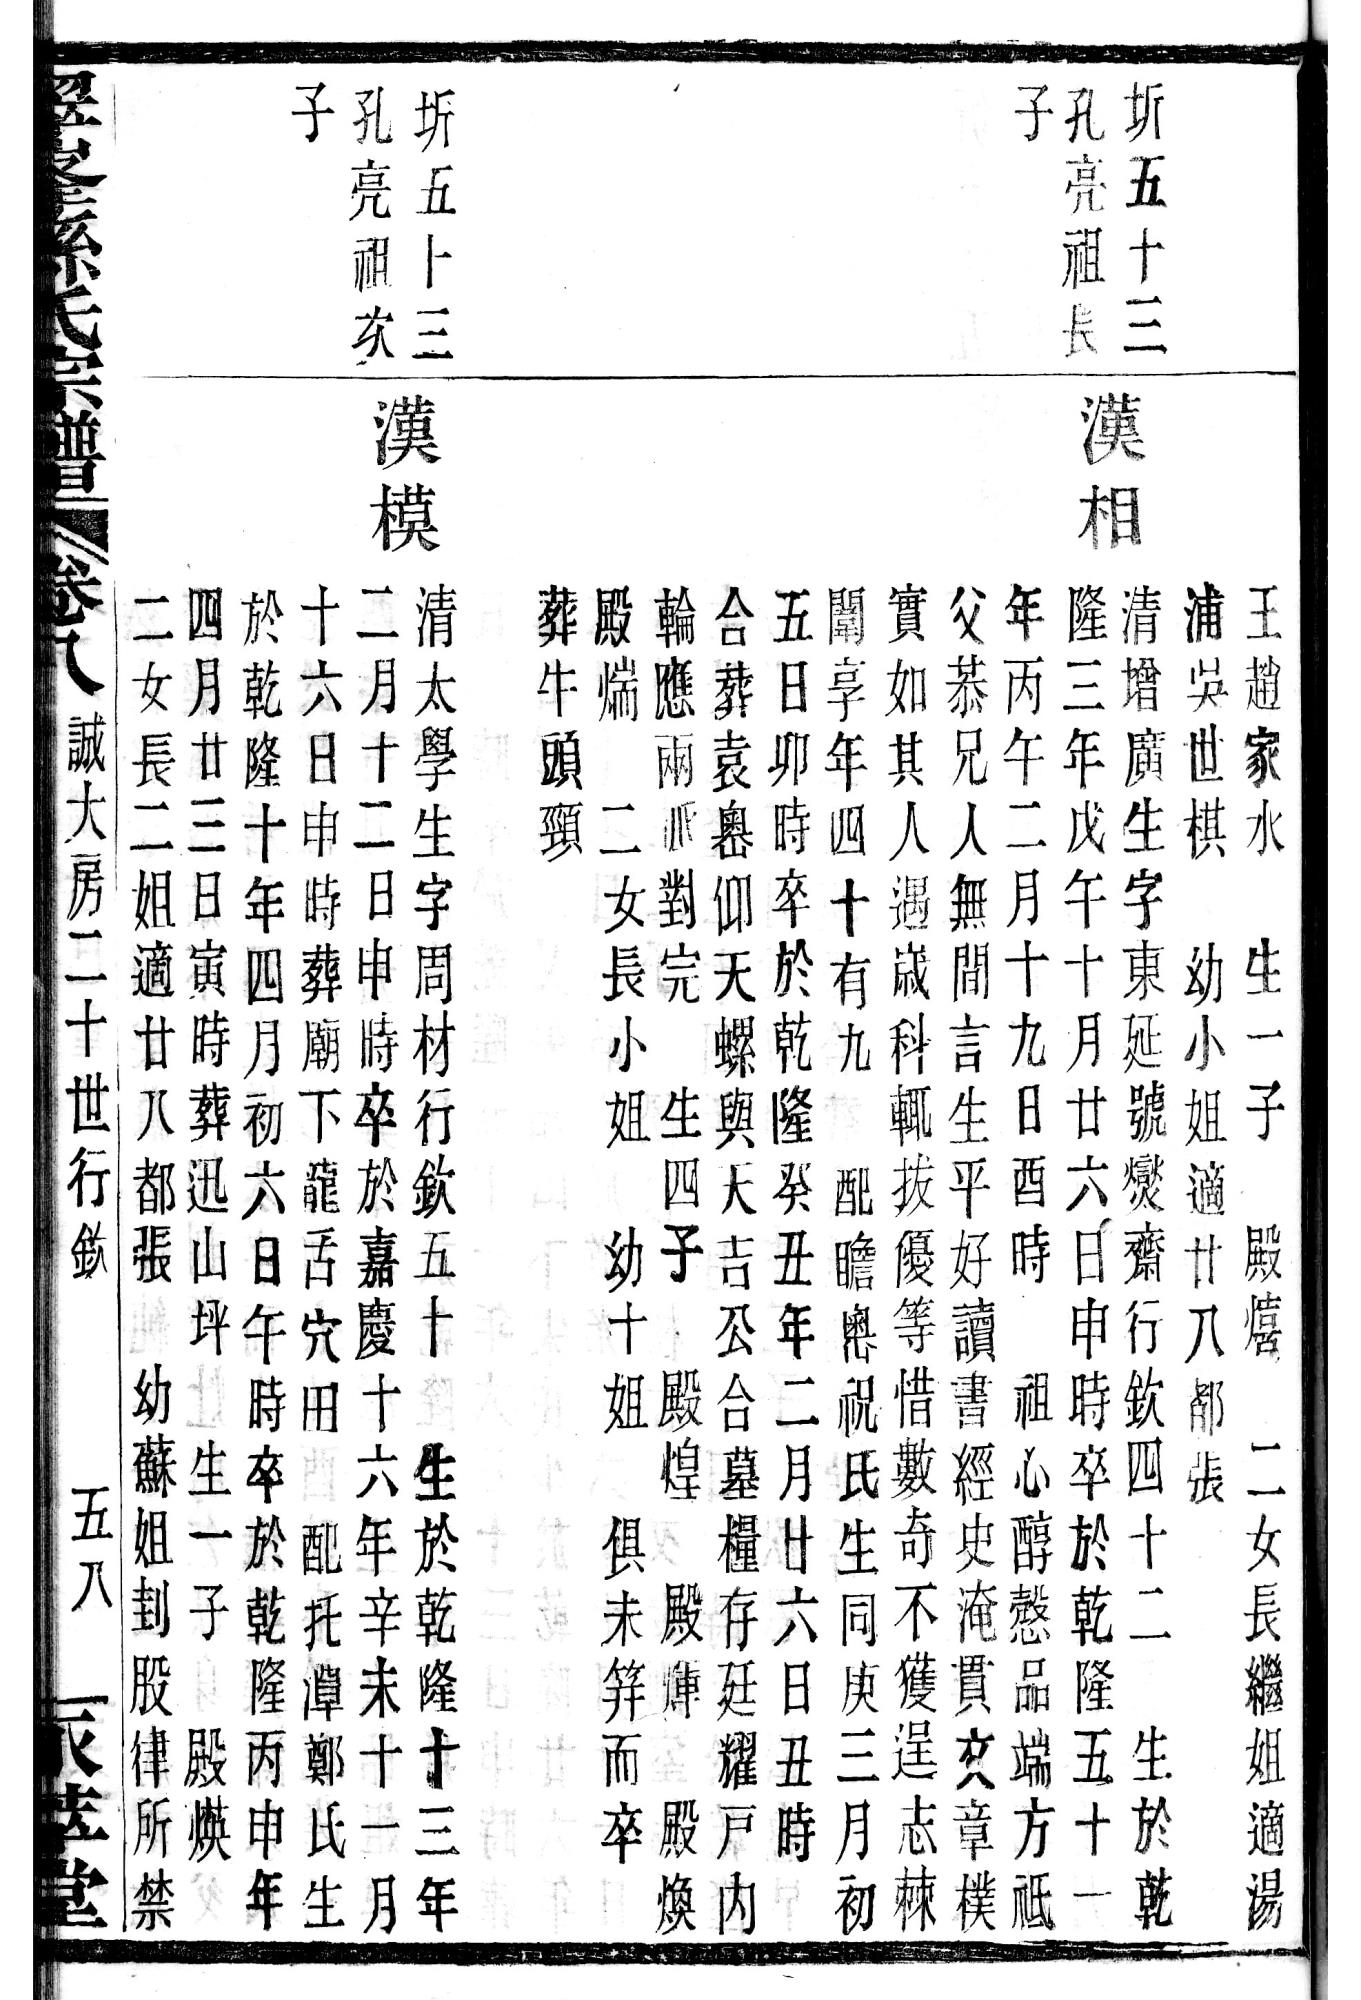 王趙家水　生一子　殿熺　二女長繼姐適湯
浦吳世棋　幼小姐適廿八都張
圻五十三
孔亮祖長
子
漢相
清增廣生字東延號爕齋行欽四十二　生於乾
隆三年戊午十月廿六日申時卒於乾隆五十一
年丙午二月十九日酉時　祖心醇慤品端方祗
父恭兄人無間言生平好讀書經史淹貫文章樸
實如其人遇歲科輒拔優等惜數奇不獲逞志棘
闈享年四十有九　配瞻嶴祝氏生同庚三月初
五日卯時卒於乾隆癸丑年二月廿六日丑時
合葬袁嶴仰天螺與大吉公合墓糧存廷耀戸内
輪應兩派對完　生四子　殿煌　殿煇　殿煥
殿煓　二女長小姐　幼十姐　俱未笄而卒
葬牛頭頸
圻五十三
孔亮祖次
子
漢模
清太學生字周材行欽五十　生於乾隆十三年
二月十二日申時卒於嘉慶十六年辛未十一月
十六日申時葬廟下龍舌穴田　配托潭鄭氏生
於乾隆十年四月初六日午時卒於乾隆丙申年
四月廿三日寅時葬迅山坪　生一子　殿煐
二女長二姐適廿八都張　幼蘇姐刲股律所禁
孫氏宗譜　卷八　誠大房二十世行欽　五八　堂